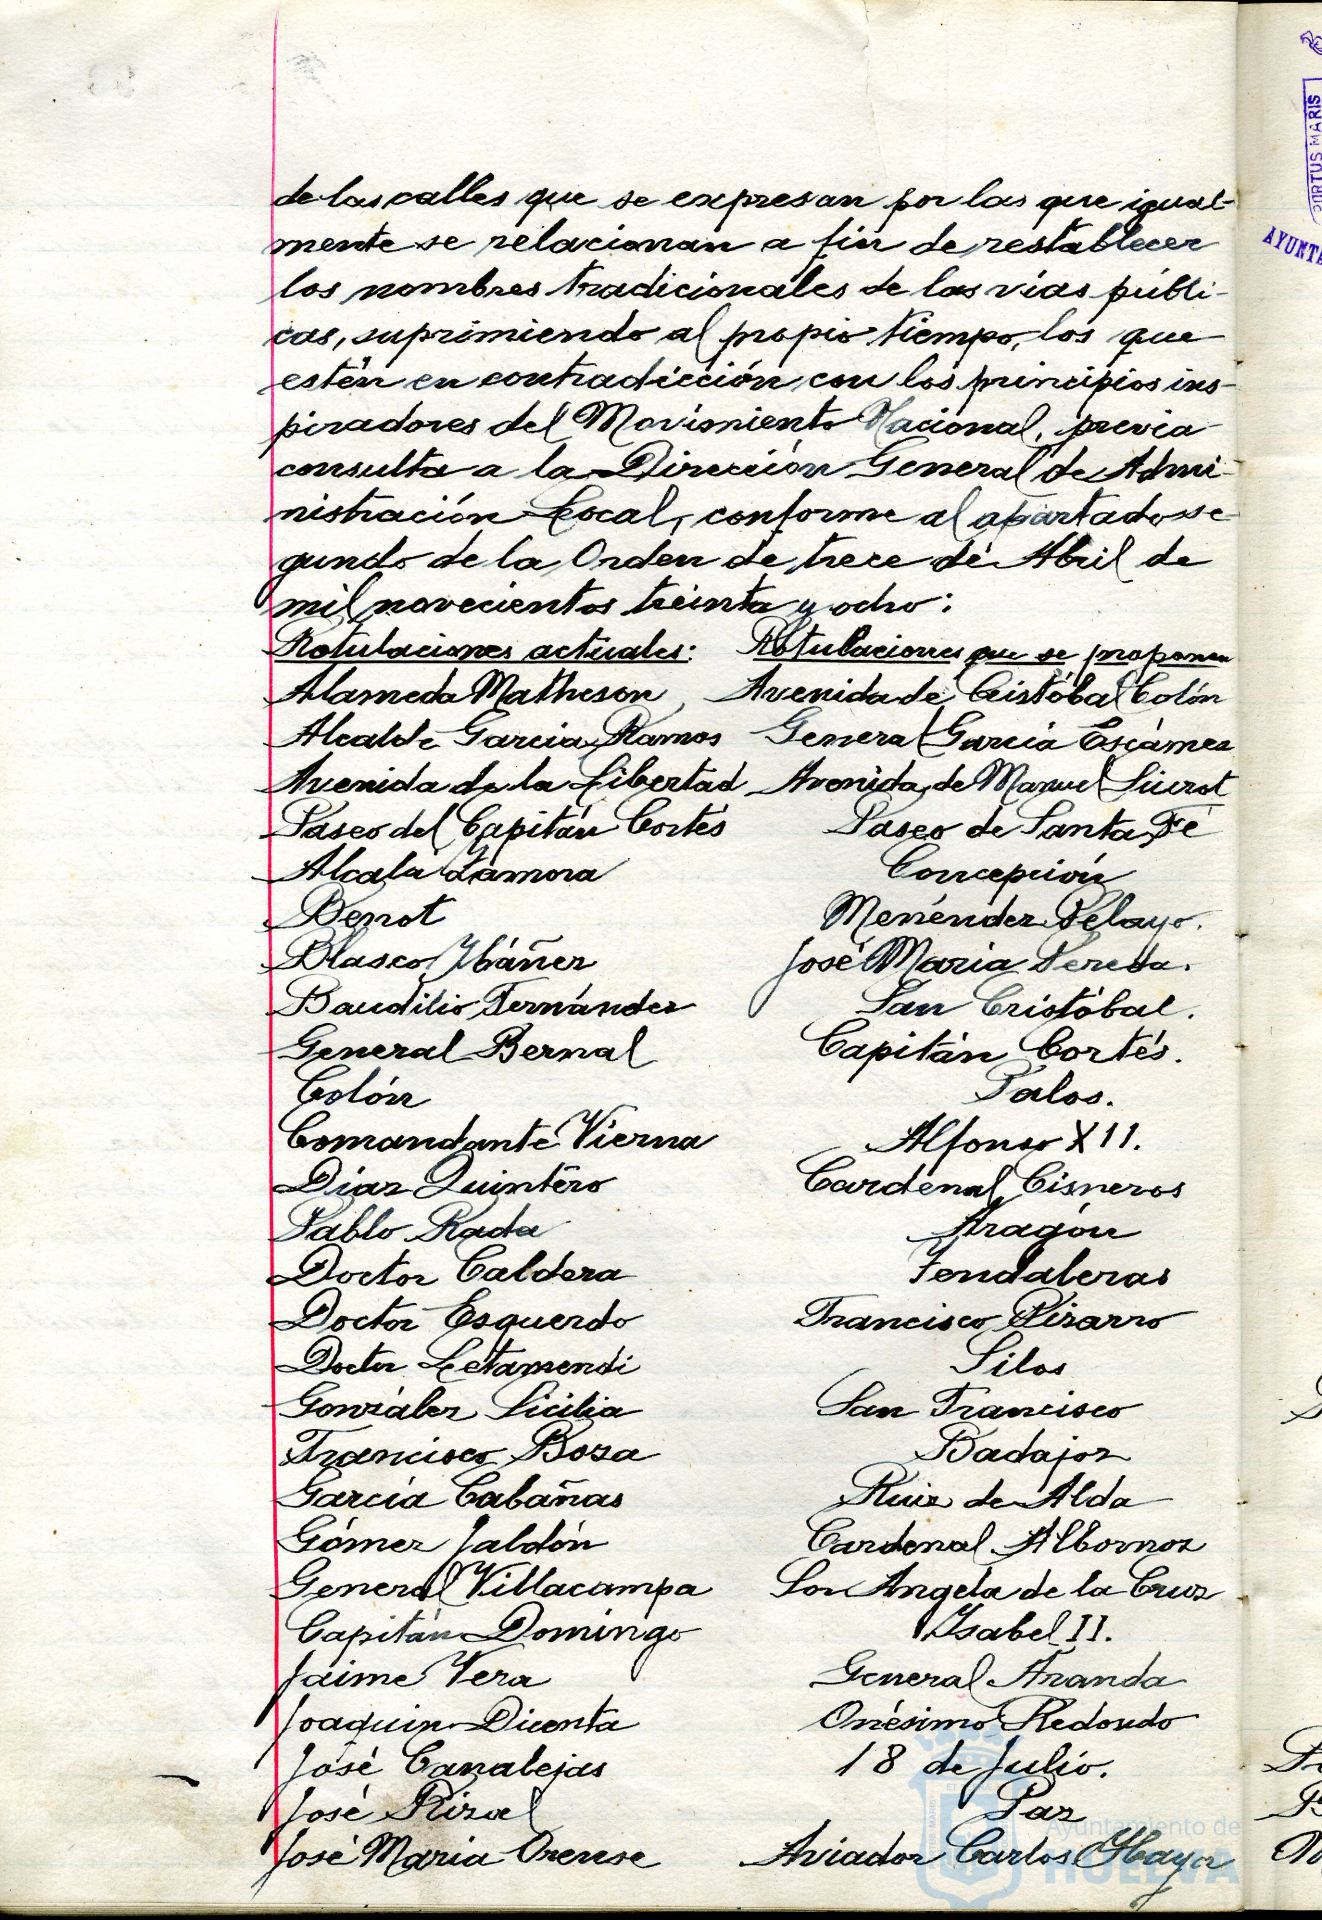 de las calles que se expresan por las que igual-
mente se relacionan a fin de restablecer
los nombres tradicionales de las vias públi-
cas, suprimiendo al propio tiempo, los que
estén en contradicción con los principios ins-
piradores del Movimiento Nacional, previa
consulta a la Dirección General de Admi-
nistración Local, conforme al apartado se-
gundo de la Orden de trece de Abril de
mil novecientos treinta y ocho:
Rotulaciones actuales: Rotulaciones que se proponen
Alameda Matheson, Avenida de Cristóbal Colón
Alcalde Garcia Ramos General Garcia Escámez
Avenida de la Libertad Avenida de Manuel Siurot
Paseo del Capitán Cortés Paseo de Santa Fé
Alcalá Zamora Concepción
Benot Menéndez Pelayo.
Blasco Ybáñez José Maria Pereda.
Baudilio Fernández San Cristóbal.
General Bernal Capitán Cortés.
Colón Palos.
Comandante Vierna Alfonso XII.
Diaz Quintero Cardenal Cisneros
Pablo Rada Aragón
Doctor Caldera Tendaleras
Doctor Esquerdo Francisco Pizarro
Doctor Letamendi Silos
González Sicilia San Francisco
Francisco Boza Badajoz
García Cabañas Ruiz de Alda
Gómez Jaldón Cardenal Albornoz
General Villacampa Sor Angela de la Cruz
Capitán Domingo Ysabel II.
Jaime Vera General Aranda
Joaquin Dicenta Onésimo Redondo
José Canalejas 18 de Julio.
José Rizal Paz
José Maria Orense Aviador Carlos Haya
PORTUS MARIS
AYUNTA
Ayuntamiento de
HUELVA